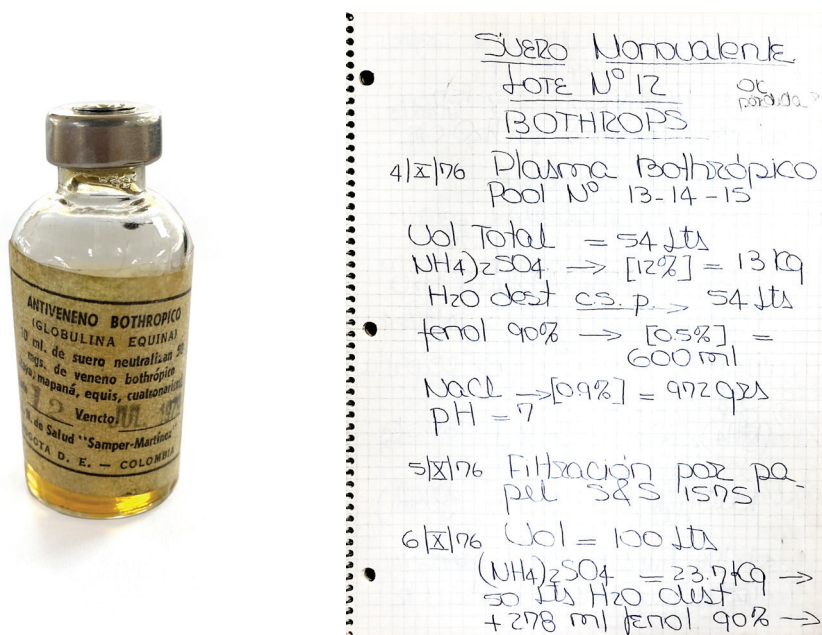 ANTIVENENO BOTHROPICO
(GLOBULINA EQUINA)
10 ml. de suero neutralizan
mgs. de veneno bothrópico
mapaná, equis, cuatronarices
12 Vencto. JUL
de Salud "Samper-Martínez"
BOGOTA D. E. — COLOMBIA
SUERO Monovalente
LOTE Nº 12
OK
BOTHROPS
4|X|76 Plasma Bothrópico
Pool Nº 13-14-15
Vol Total = 54 Lts
NH4)2SO4 → [12%] = 13 Kg
H2O dest c.s.p. → 54 Lts
fenol 90% → [0.5%] =
600 ml
NaCl → [0.9%] = 972 grs
pH = 7
5|X|76 Filtración por pa-
pel S&S 1575
6|X|76 Vol = 100 Lts
(NH4)2SO4 = 23.7 Kg →
50 Lts H2O dest
+ 278 ml fenol 90% →